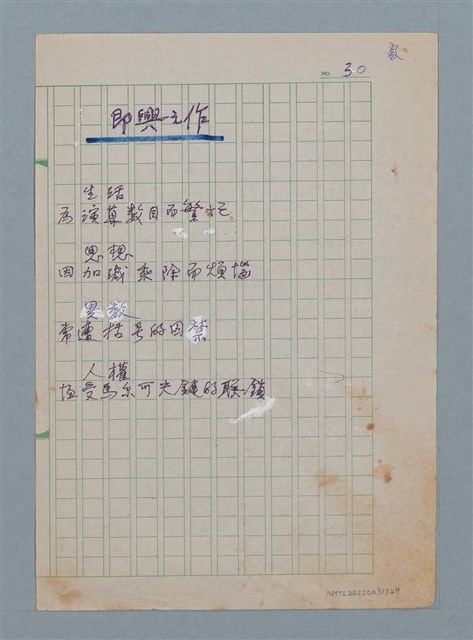 數
NO. 30
即興之作
生活
為演算數目而繁忙
思想
因加減乘除而煩惱
異數
常遭括號的囚禁
人權
恆受馬尔可夫鏈的联鎖
NMTL20220031249